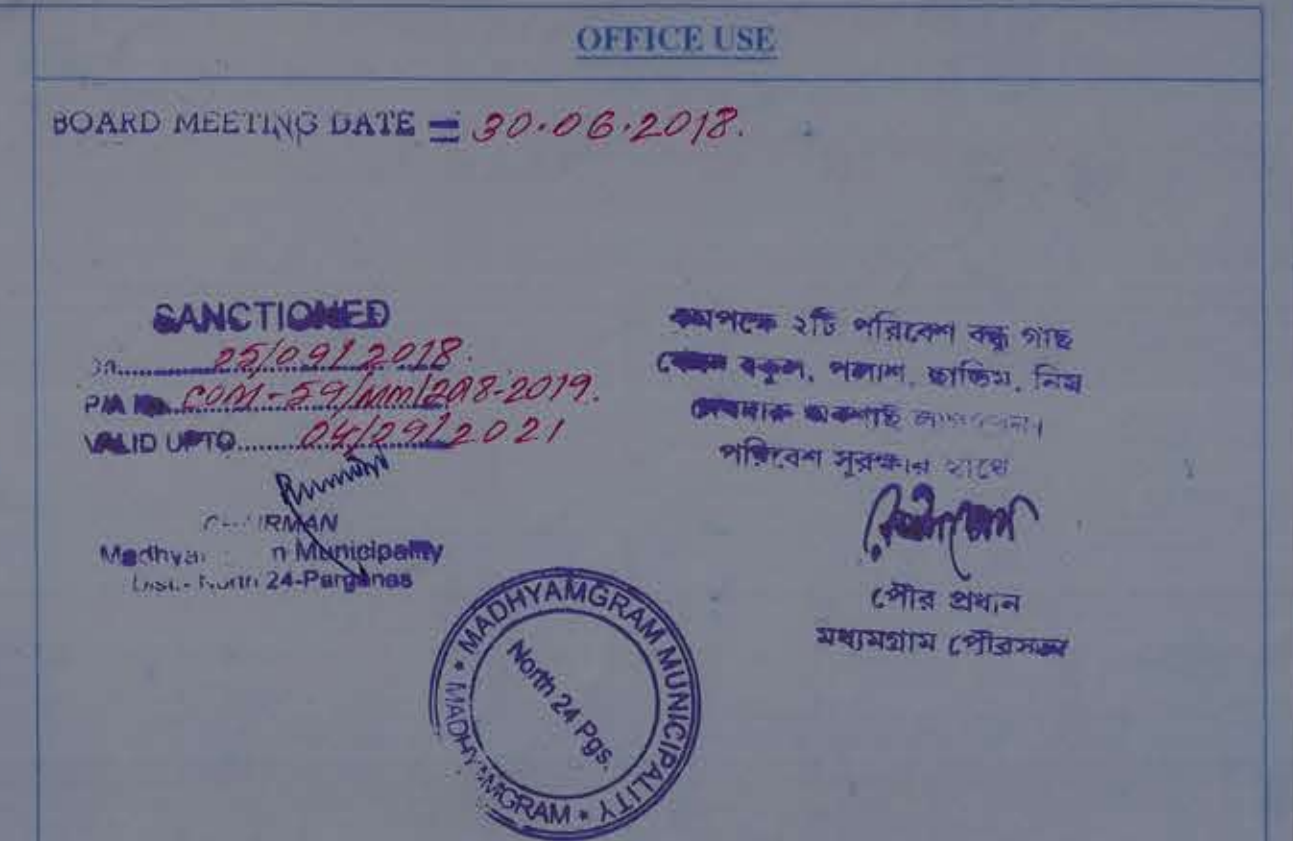 OFFICE USE
BOARD MEETING DATE = 30.06.2018.
SANCTIONED
25/09/2018.
COM-59/MM/2018-2019.
VALID UPTO 04/29/2021
CHAIRMAN
Municipality
Dist.- North 24-Parganas
কমপক্ষে ২টি পরিবেশ বন্ধু গাছ
যেমন বকুল, পলাশ, ছাতিম, নিম
দেবদারু
পরিবেশ সুরক্ষার
পৌর প্রধান
মধ্যমগ্রাম পৌরসভা
MADHYAMGRAM MUNICIPALITY * MADHYAMGRAM *
North 24 Pgs.